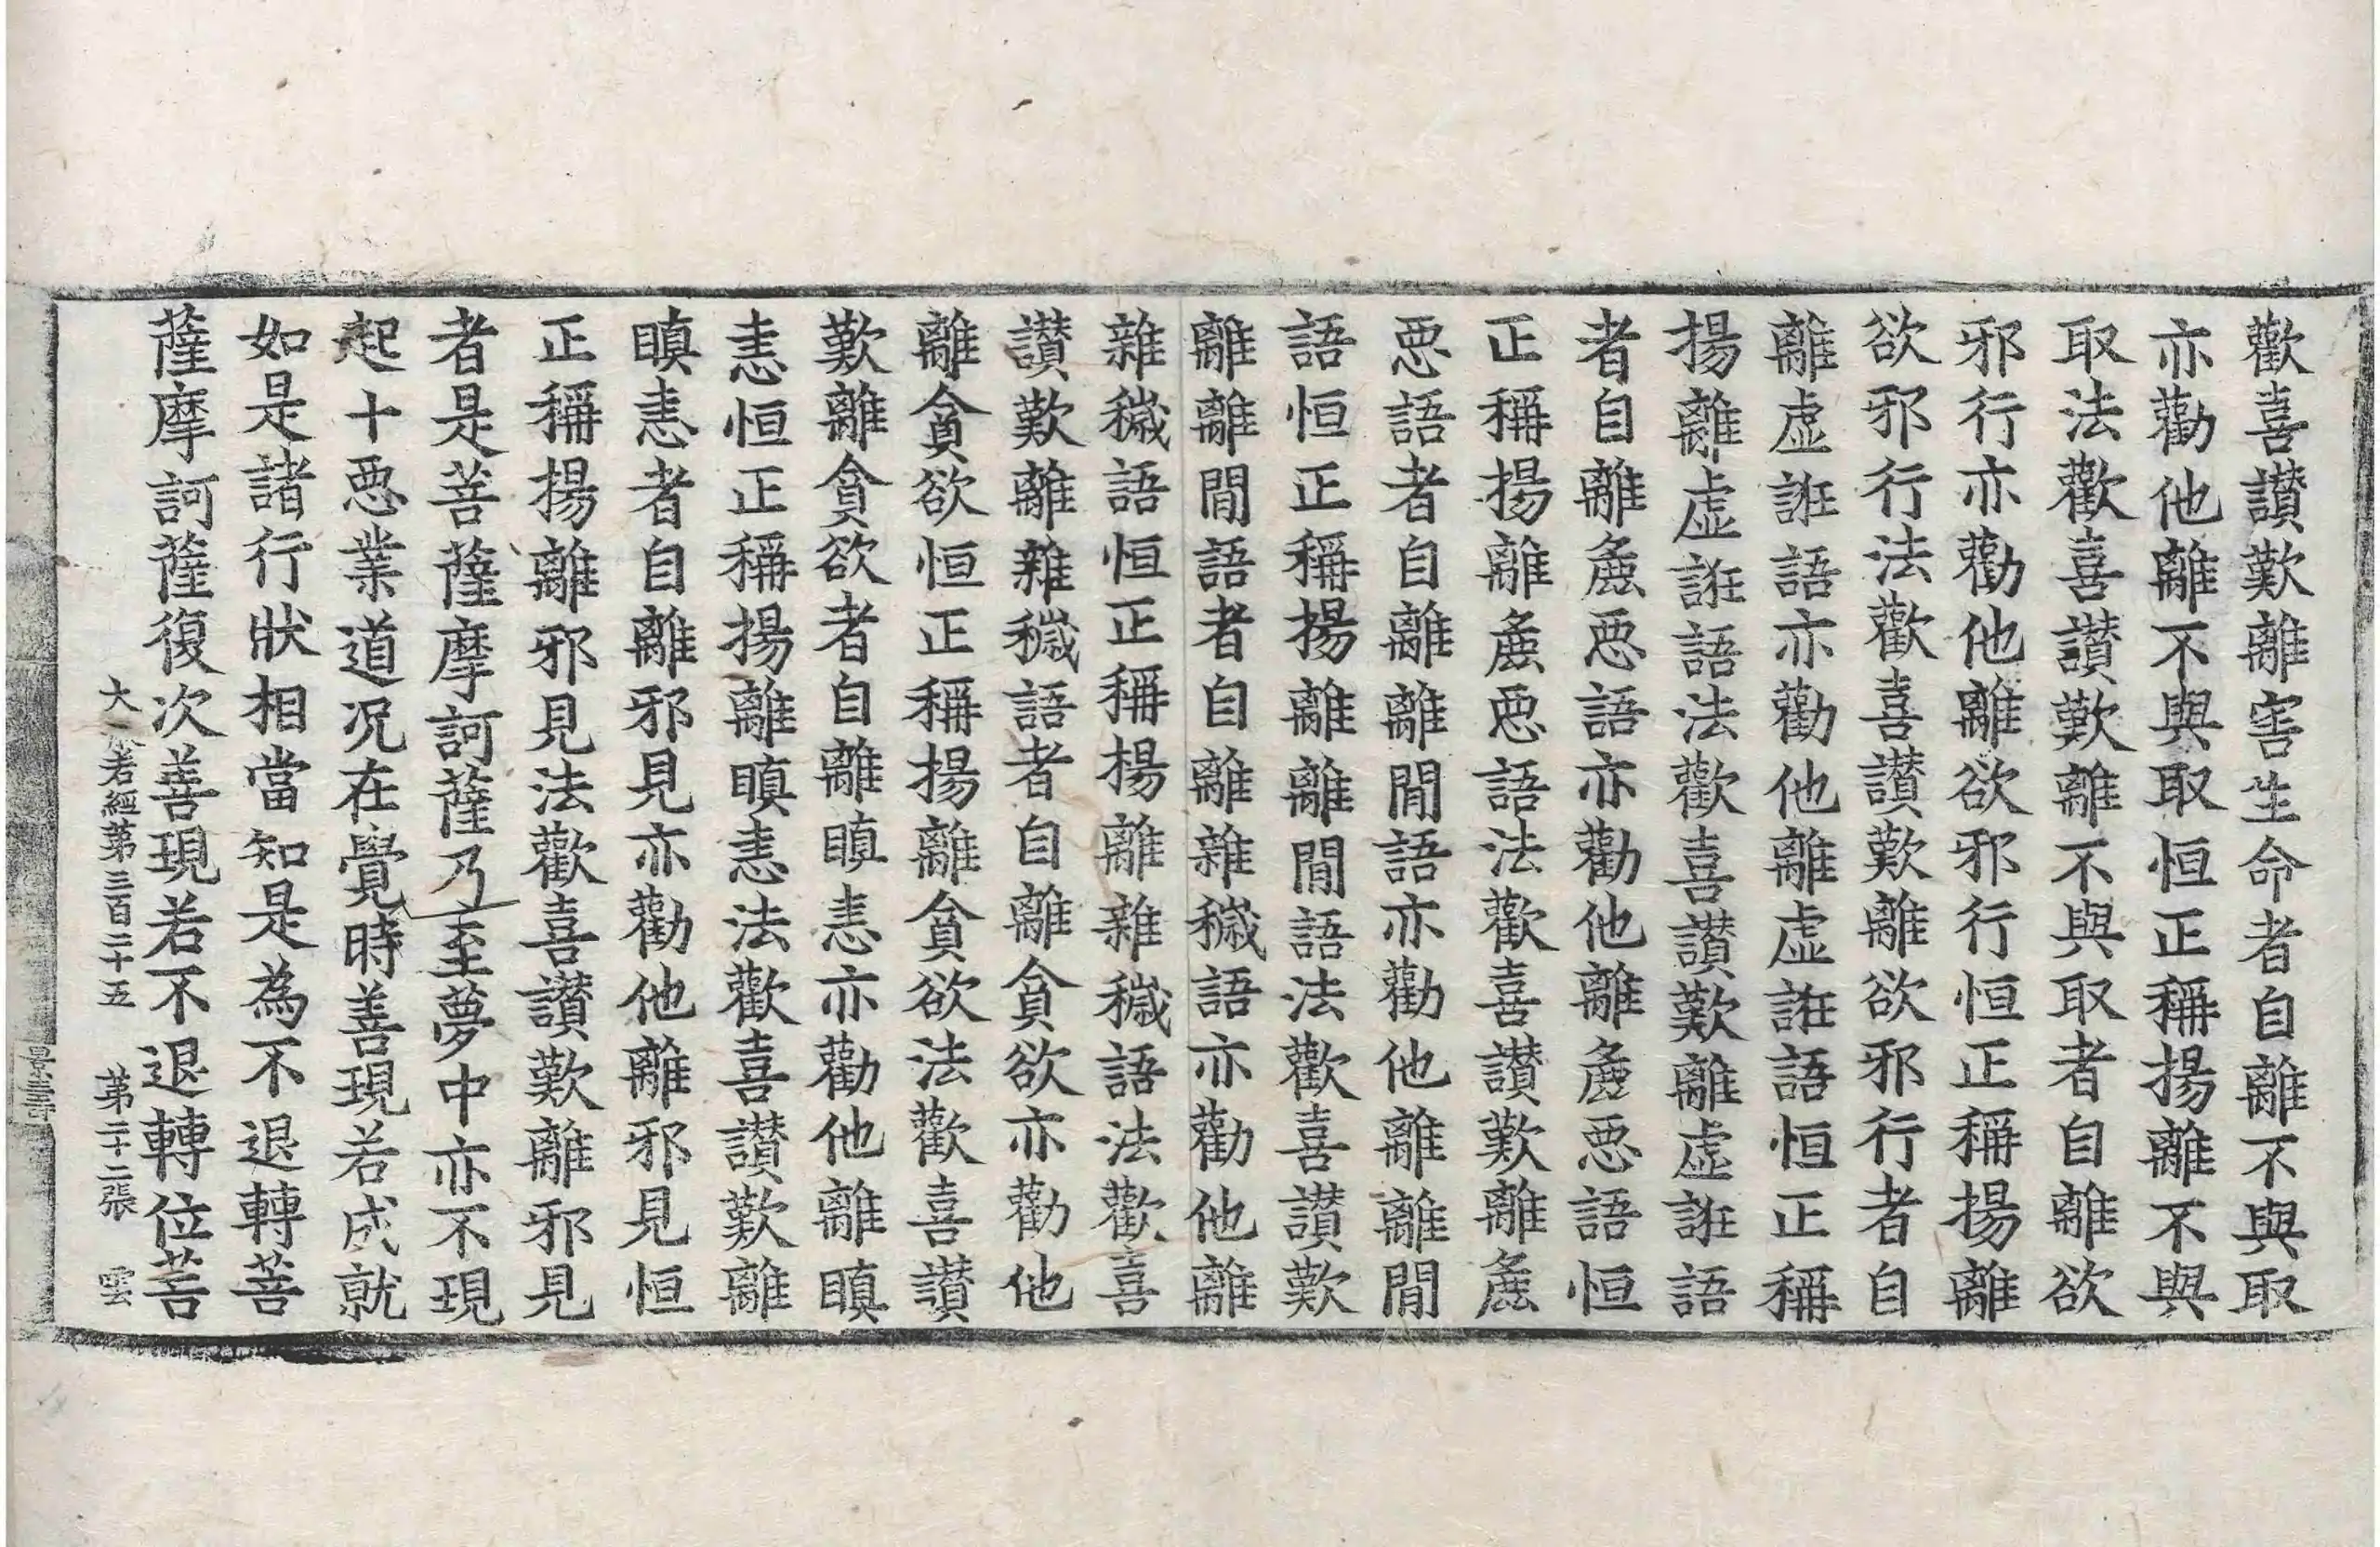 歡喜讃歎離害生命者自離不與取
亦勸他離不與取恒正稱揚離不與
取法歡喜讃歎離不與取者自離欲
邪行亦勸他離欲邪行恒正稱揚離
欲邪行法歡喜讃歎離欲邪行者自
離虛誑語亦勸他離虛誑語恒正稱
揚離虛誑語法歡喜讃歎離虛誑語
者自離麁惡語亦勸他離麁惡語恒
正稱揚離麁惡語法歡喜讃歎離麁
惡語者自離離閒語亦勸他離離閒
語恒正稱揚離離閒語法歡喜讃歎
離離閒語者自離雜穢語亦勸他離
雜穢語恒正稱揚離雜穢語法歡喜
讃歎離雜穢語者自離貪欲亦勸他
離貪欲恒正稱揚離貪欲法歡喜讃
歎離貪欲者自離瞋恚亦勸他離瞋
恚恒正稱揚離瞋恚法歡喜讃歎離
瞋恚者自離邪見亦勸他離邪見恒
正稱揚離邪見法歡喜讃歎離邪見
者是菩薩摩訶薩乃至夢中亦不現
起十惡業道況在覺時善現若成就
如是諸行狀相當知是為不退轉菩
薩摩訶薩復次善現若不退轉位菩
大般若經第三百二十五 第二十二張 雲
景壽